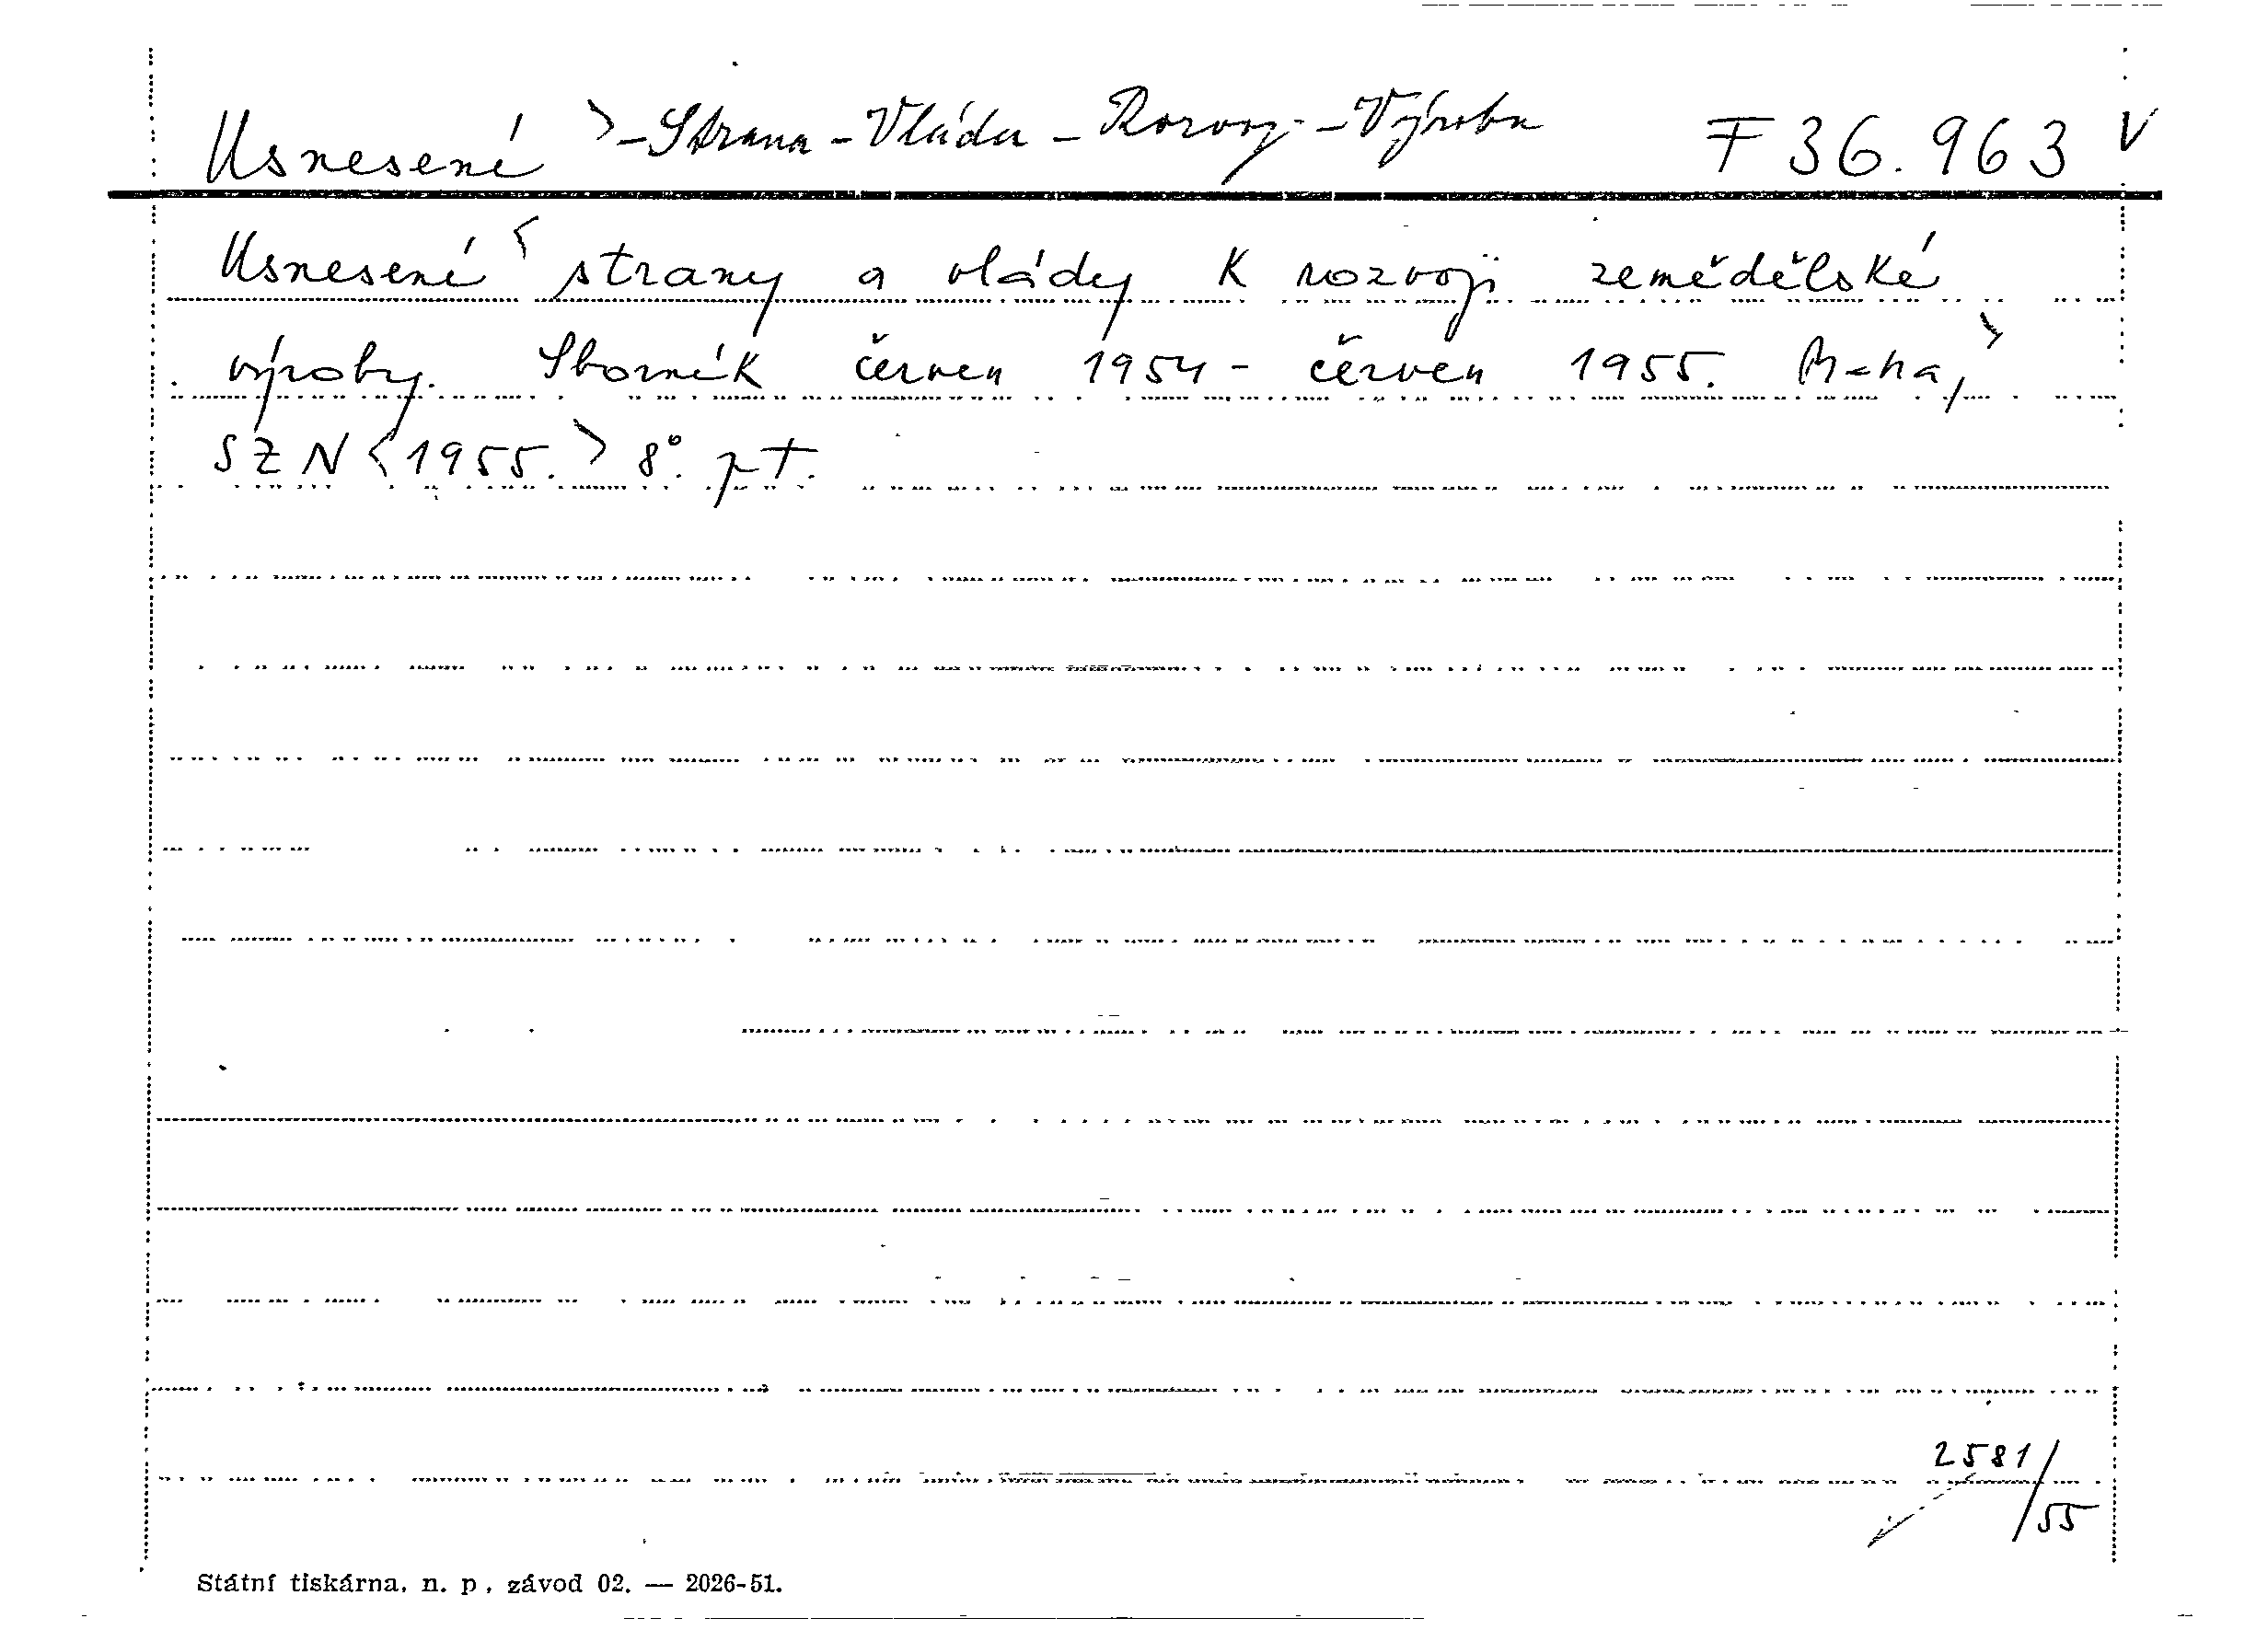 Usnesení > - Strana - Vláda - Rozvoj - Výroba F 36.963 V
Usnesení < strany a vlády k rozvoji zemědělské
výroby. Sborník červen 1954 - červen 1955. Praha, >
SZN <1955.> 8°. pT.
2581/
/55
Státní tiskárna, n. p., závod 02. — 2026-51.